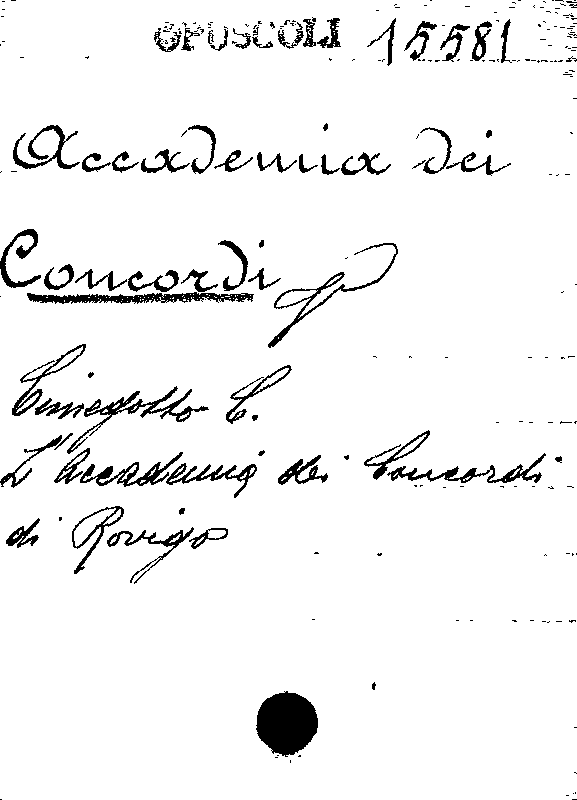 OPUSCOLI 15581
Accademia dei
Concordi
Cimegotto C.
L'Accademia dei Concordi
di Rovigo